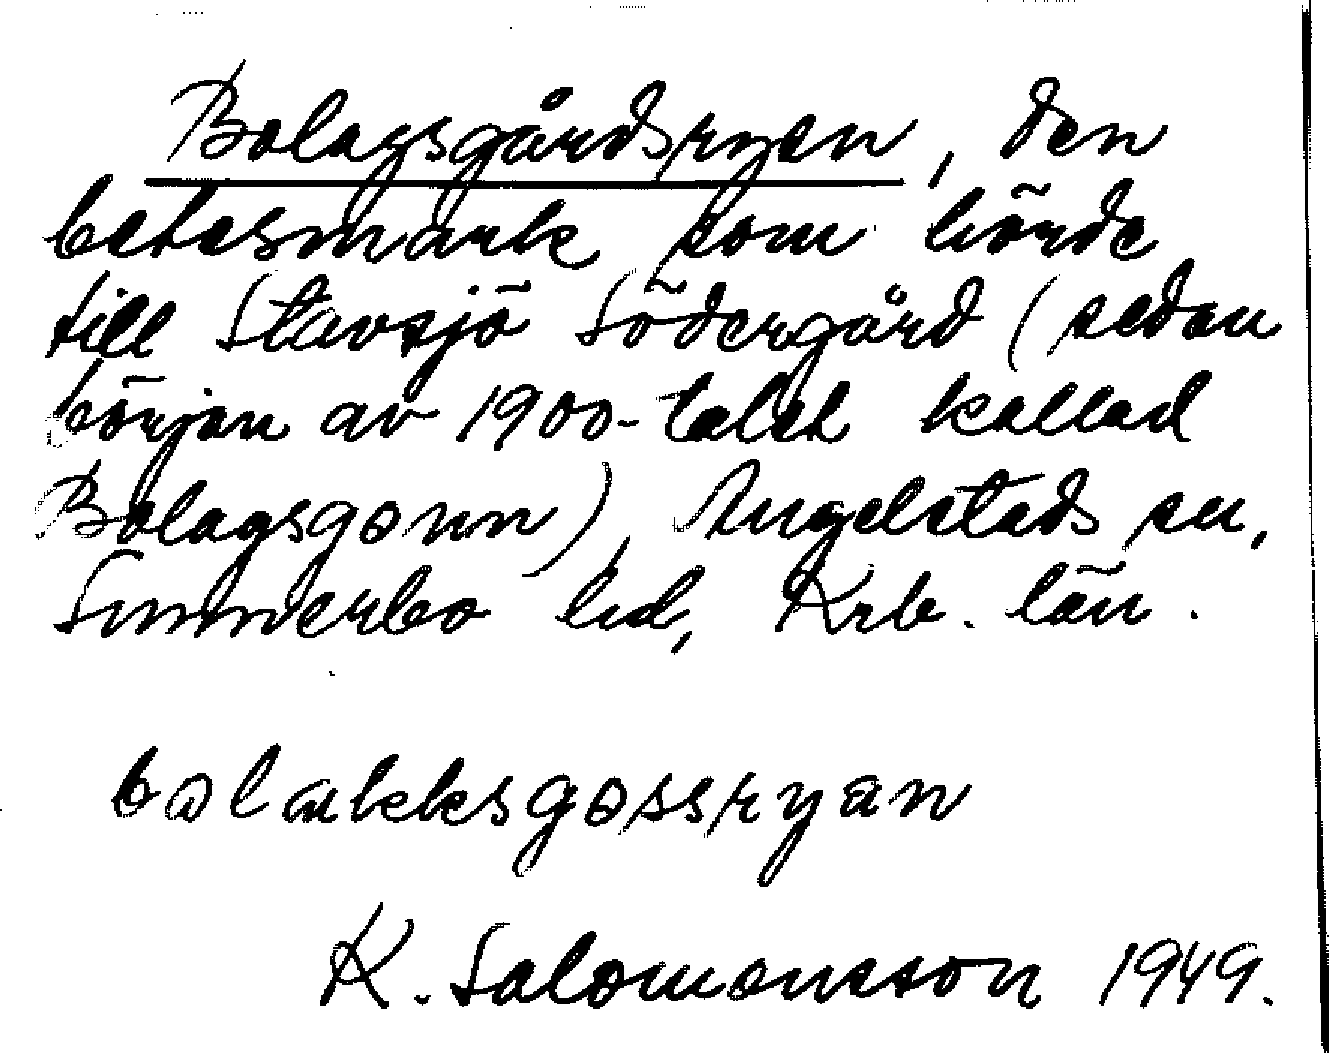 Bolagsgårdsryen, den
betesmark som hörde
till Stavsjö Södergård (sedan
början av 1900-talet kallad
Bolagsgonn), Angelstads sn,
Sunnerbo hd, Krb. län.
bolakksgossryan
K. Salomonsson 1949.